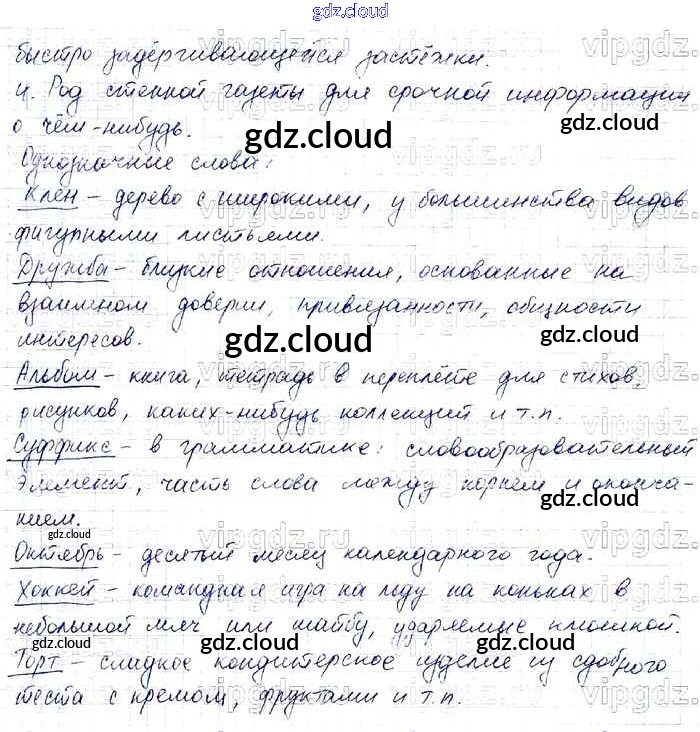 gdz.cloud
быстро задёргивающейся застёжки.
4. Род стенной газеты для срочной информации
о чём-нибудь.
Однозначные слова:
Клён – дерево с широкими, у большинства видов
фигурными листьями.
Дружба – близкие отношения, основанные на
взаимном доверии, привязанности, общности
интересов.
Альбом – книга, тетрадь в переплёте для стихов,
рисунков, каких-нибудь коллекций и т.п.
Суффикс – в грамматике: словообразовательный
элемент, часть слова между корнем и оконча-
нием.
Октябрь – десятый месяц календарного года.
Хоккей – командная игра на льду на коньках в
небольшой мяч или шайбу, ударяемые клюшкой.
Торт – сладкое кондитерское изделие из сдобного
теста с кремом, фруктами и т.п.